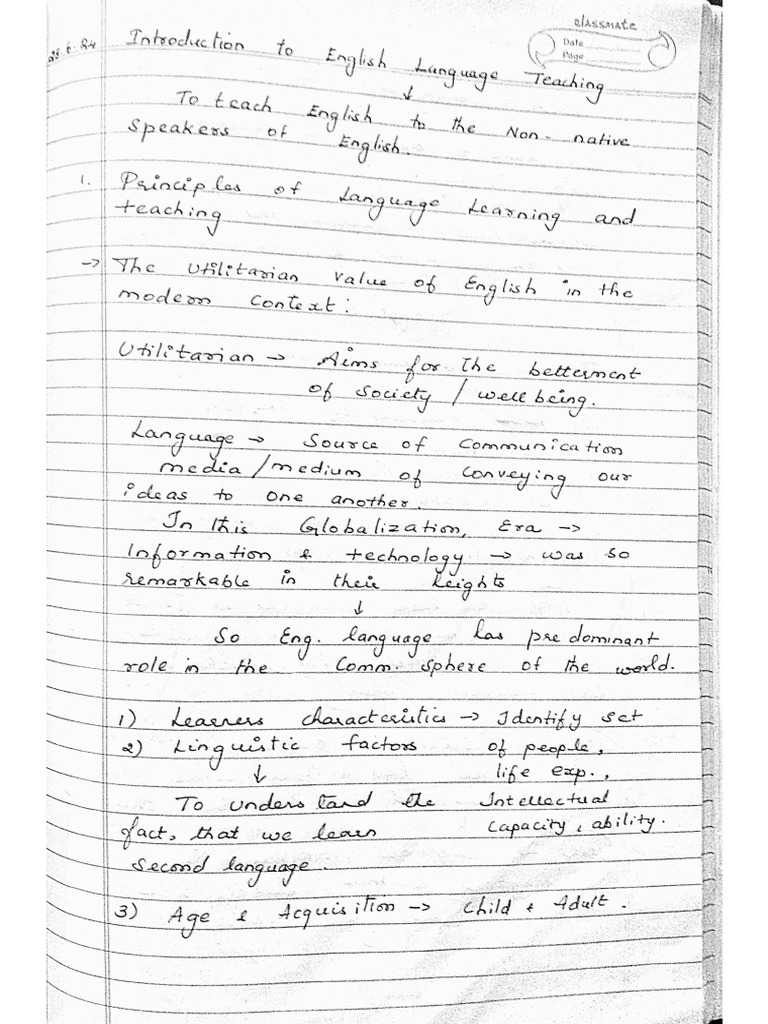 classmate
Date
Page
25.6.24
Introduction to English Language Teaching
↓
To teach English to the Non-native
Speakers of English.
1. Principles of Language Learning and
teaching
→ The Utilitarian value of English in the
modern context:
Utilitarian → Aims for the betterment
of society / well being.
Language → Source of Communication
media/medium of conveying our
ideas to one another.
In this Globalization, Era →
Information & technology → was so
remarkable in their heights
↓
So Eng. language has predominant
role in the Comm. sphere of the world.
1) Learners characteristics → Identify set
2) Linguistic factors of people,
↓ life exp.,
To understand the Intellectual
fact, that we learn capacity, ability.
Second language.
3) Age & Acquisition → Child & Adult.